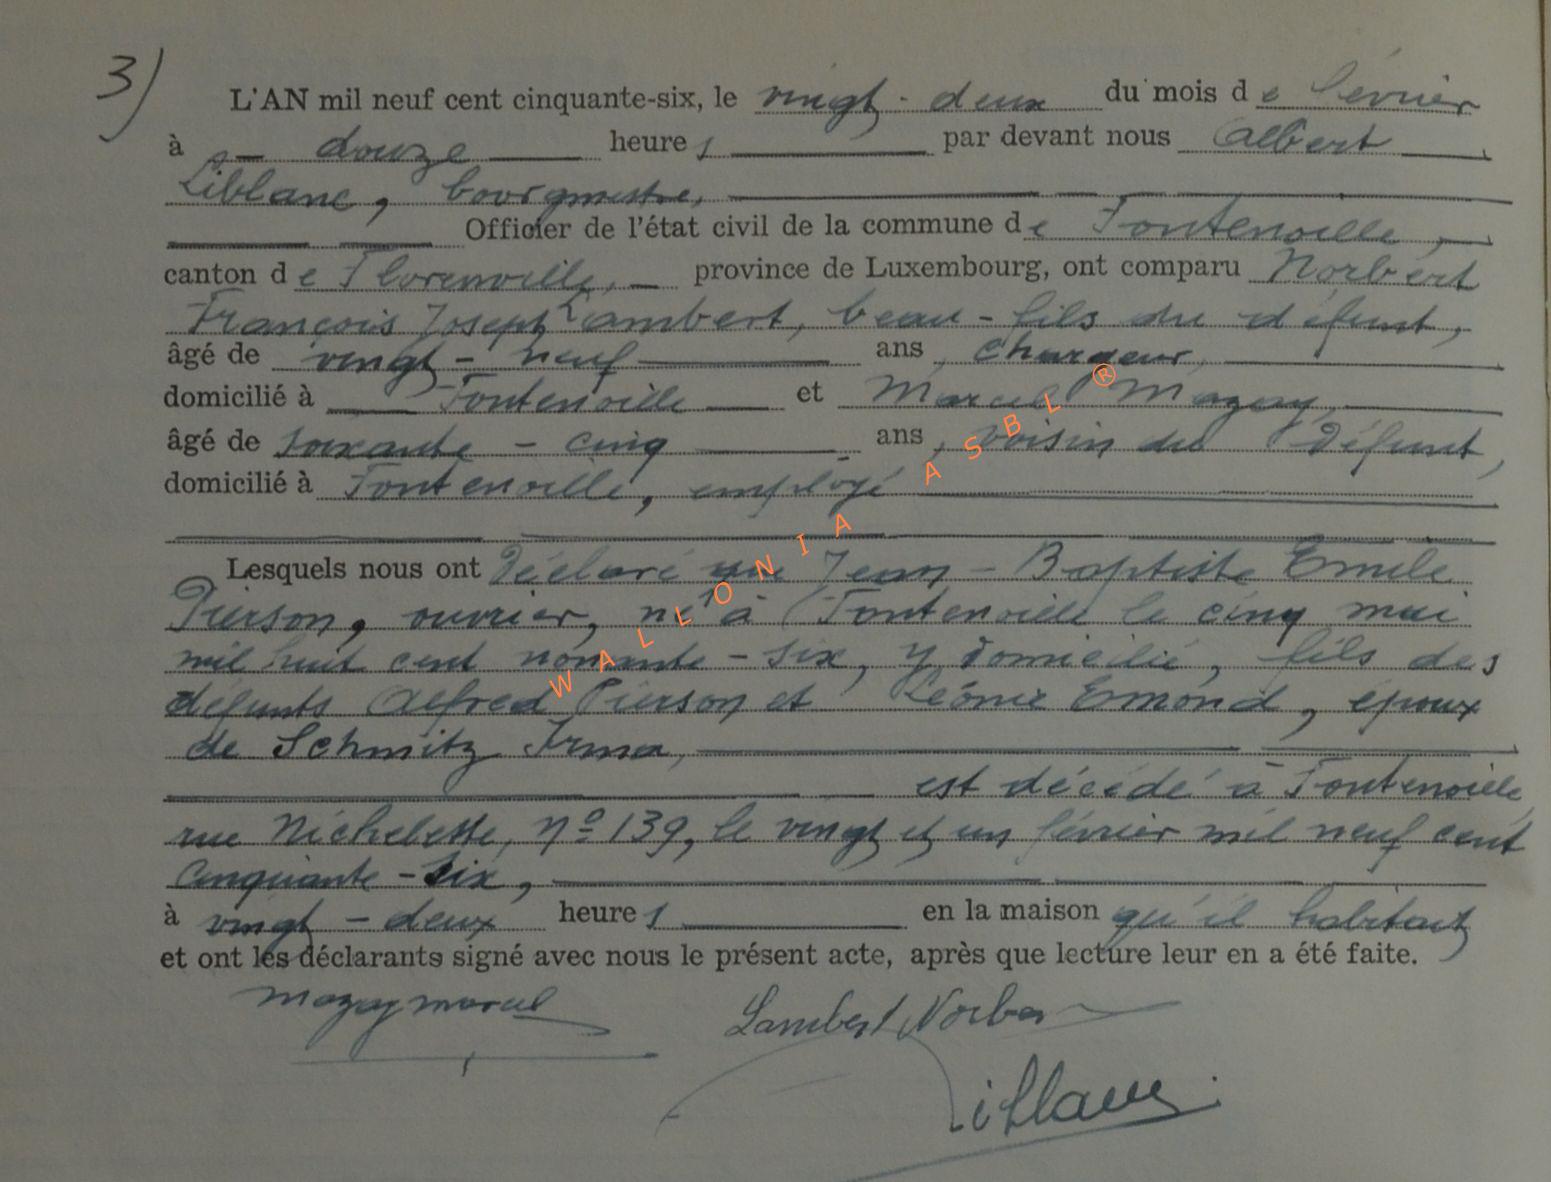 3)
L'AN mil neuf cent cinquante-six, le vingt - deux du mois de février
à douze heures par devant nous Albert
Liblanc, bourgmestre,
Officier de l'état civil de la commune de Fontenoille,
canton de Florenville, province de Luxembourg, ont comparu Norbert
François Joseph Lambert, beau-fils du défunt,
âgé de vingt - neuf ans, chargeur,
domicilié à Fontenoille et Marcel Mazay,
âgé de soixante - cinq ans, voisin du défunt,
domicilié à Fontenoille, employé
Lesquels nous ont déclaré que Jean - Baptiste Emile
Pierson, ouvrier, né à Fontenoille le cinq mai
mil huit cent nonante - six, y domicilié, fils des
défunts Alfred Pierson et Léonie Emond, époux
de Schmitz Irma,
est décédé à Fontenoille,
rue Nichelette, nº 139, le vingt et un février mil neuf cent
cinquante - six,
à vingt - deux heures en la maison qu'il habitait
et ont les déclarants signé avec nous le présent acte, après que lecture leur en a été faite.
Mazay Marcel Lambert Norbert
Liblanc
WALLONIA ASBL ®